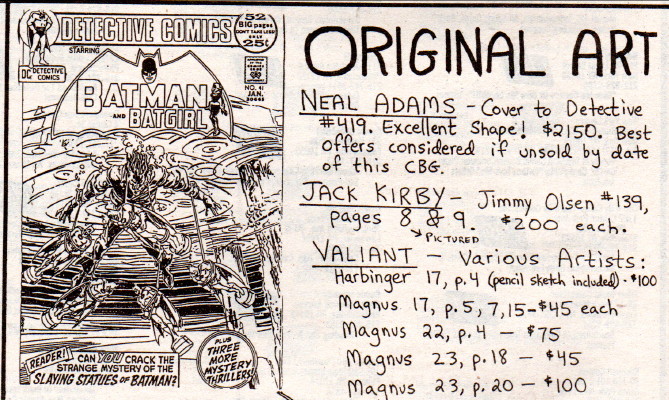 DETECTIVE COMICS
52
BIG pages
DON'T TAKE LESS!
ONLY
25¢
STARRING
DC DETECTIVE
COMICS
BATMAN
AND BATGIRL
NO. 41
JAN.
30645
READER!
CAN YOU CRACK THE
STRANGE MYSTERY OF THE
SLAYING STATUES OF BATMAN?
PLUS
THREE
MORE
MYSTERY
THRILLERS!
ORIGINAL ART
NEAL ADAMS - Cover to Detective
#419. Excellent Shape! $2150. Best
offers considered if unsold by date
of this CBG.
JACK KIRBY - Jimmy Olsen #139,
pages 8 & 9. $200 each.
PICTURED
VALIANT - Various Artists:
Harbinger 17, p.4 (pencil sketch included) - $100
Magnus 17, p.5, 7, 15 - $45 each
Magnus 22, p.4 - $75
Magnus 23, p.18 - $45
Magnus 23, p.20 - $100